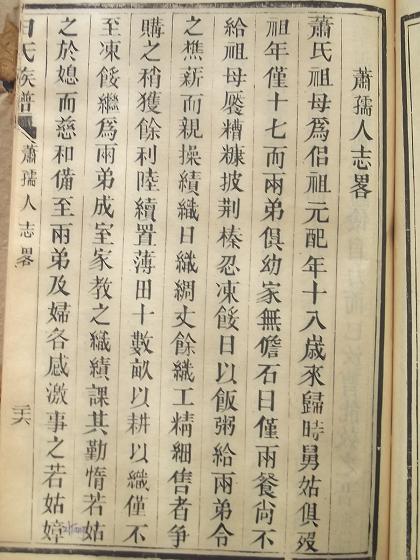 蕭孺人志畧
蕭氏祖母爲侶祖元配年十八歲來歸時舅姑俱歿
祖年僅十七而兩弟俱幼家無儋石日僅兩餐尚不
給祖母饜糟糠披荆榛忍凍餒日以飯粥給兩弟令
之樵薪而親操績織日織綢丈餘織工精細售者爭
購之稍獲餘利陸續置薄田十數畝以耕以織僅不
至凍餒繼爲兩弟成室家教之織績課其勤惰若姑
之於媳而慈和備至兩弟及婦各感激事之若姑嫜
氏族譜 蕭孺人志畧 二六